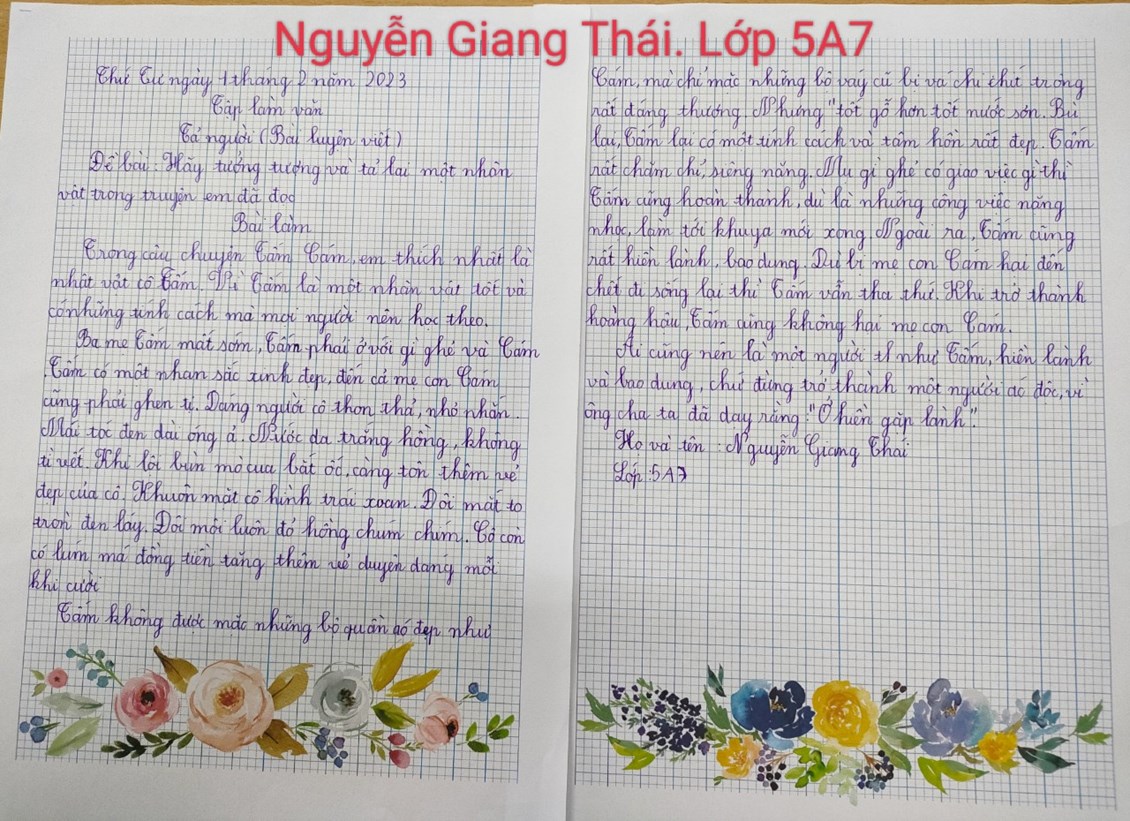 Nguyễn Giang Thái. Lớp 5A7
Thứ Tư ngày 1 tháng 2 năm 2023
Tập làm văn
Tả người (Bài luyện viết)
Đề bài: Hãy tưởng tượng và tả lại một nhân
vật trong truyện em đã đọc
Bài làm
Trong câu chuyện Tấm Cám, em thích nhất là
nhât vật cô Tấm. Vì Tấm là một nhân vật tốt và
cónhững tính cách mà mọi người nên học theo.
Ba mẹ Tấm mất sớm, Tấm phải ở với gì ghẻ và Cám
. Tấm có một nhan sắc xinh đẹp, đến cả mẹ con Cám
cũng phải ghen tị. Dáng người cô thon thả, nhỏ nhắn.
Mái tóc đen dài óng ả. Nước da trắng hồng, không
tì vết. Khi lội bùn mò cua bắt ốc, càng tôn thêm vẻ
đẹp của cô. Khuôn mặt cô hình trái xoan. Đôi mắt to
tròn đen láy. Đôi môi luôn đỏ hồng chúm chím. Cô còn
có lúm má đồng tiền tăng thêm vẻ duyên dáng mỗi
khi cười
Tấm không được mặc những bộ quần áo đẹp như
Cám, mà chỉ mặc những bộ váy cũ bị vá chi chít trông
rất đáng thương. Nhưng "tốt gỗ hơn tốt nước sơn. Bù
lại, Tấm lại có một tính cách và tâm hồn rất đẹp. Tấm
rất chăm chỉ, siêng năng. Mụ gì ghẻ có giao việc gì thì
Tấm cũng hoàn thành, dù là những công việc nặng
nhọc, làm tới khuya mới xong. Ngoài ra, Tấm cũng
rất hiền lành, bao dung. Dù bị mẹ con Cám hại đến
chết đi sống lại thì Tấm vẫn tha thứ. Khi trở thành
hoàng hậu, Tấm cũng không hại mẹ con Cám.
Ai cũng nên là một người như Tấm, hiền lành
và bao dung, chứ đừng trở thành một người ác độc, vì
ông cha ta đã dạy rằng: "Ở hiền gặp lành".
Họ và tên : Nguyễn Giang Thái
Lớp: 5A7